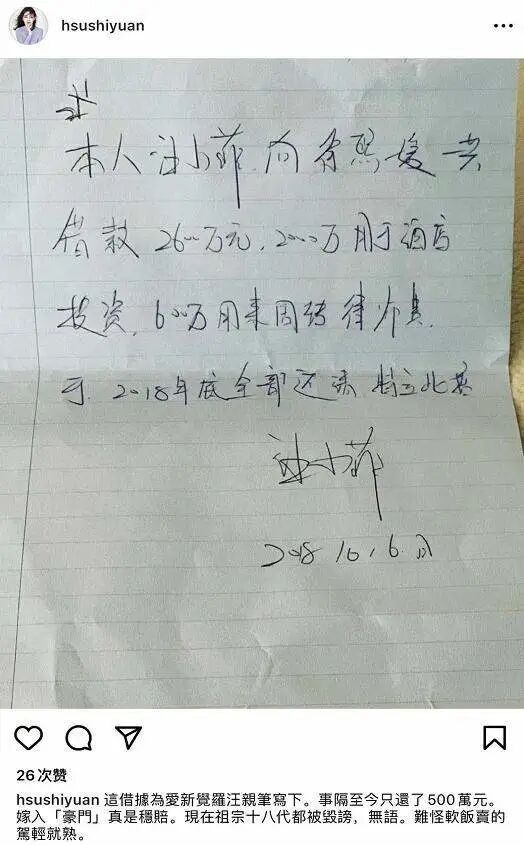 hsushiyuan
本人汪小菲,向徐熙媛共
借款 2600万元,2000万用于酒店
投资,600万用来周转律师费.
于2018年底全部还清 特立此
汪小菲
2018 10.6.日
26 次赞
hsushiyuan 這借據為愛新覺羅汪親筆寫下。事隔至今只還了500萬元。
嫁入「豪門」真是穩賠。現在祖宗十八代都被毀謗，無語。難怪軟飯賣的
駕輕就熟。